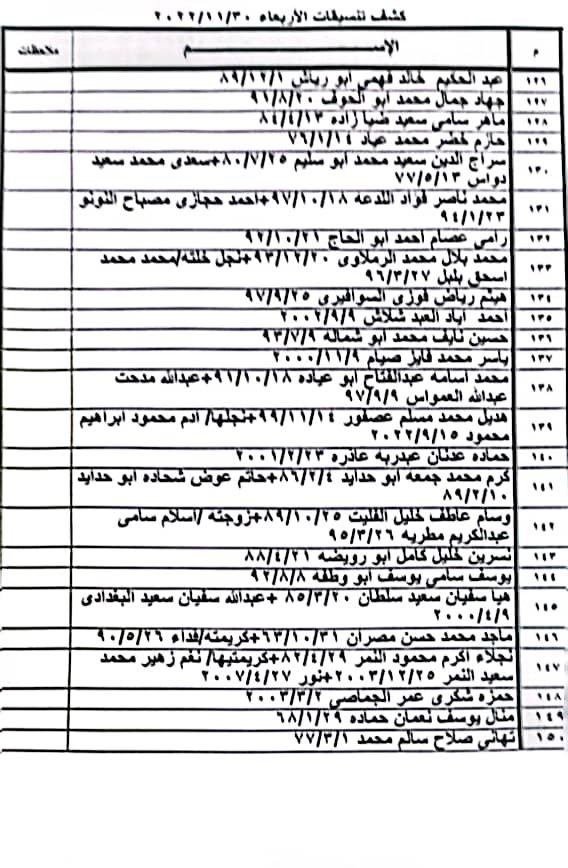 كشف تنسيقات الأربعاء ٢٠٢٢/١١/٣٠
م الإســـم ملاحظات
١٢٦ عبد الحكيم خالد فهمى ابو رياش ٨٩/١٢/١
١٢٧ جهاد جمال محمد ابو الخوف ٩١/٨/٢٠
١٢٨ ماهر سامى سعيد ضبا زاده ٨٤/٤/١٣
١٢٩ حازم خضر محمد عياد ٧٦/١/١٤
١٣٠ سراج الدين سعيد محمد ابو سليم ٨٠/٧/٢٥+سعدى محمد سعيد
دواس ٧٧/٥/١٣
١٣١ محمد ناصر فؤاد اللدعه ٩٧/١٠/١٨+احمد حجازى مصباح النونو
٩٤/١/٢٣
١٣٢ رامى عصام احمد ابو الحاج ٩٢/١٠/٢١
١٣٣ محمد بلال محمد الرملاوى ٩٣/١٢/٢٠+نجل خلته/محمد محمد
اسحق بلبل ٩٦/٣/٢٧
١٣٤ هيثم رياض فوزى السوافيرى ٩٧/٩/٢٥
١٣٥ احمد اياد العبد شلاش ٢٠٠٢/٩/٩
١٣٦ حسين نايف محمد ابو شماله ٩٣/٧/٩
١٣٧ ياسر محمد فايز صيام ٢٠٠٠/١١/٩
١٣٨ محمد اسامه عبدالفتاح ابو عياده ٩١/١٠/١٨+عبدالله مدحت
عبدالله العمواس ٩٧/٩/٩
١٣٩ هديل محمد مسلم عصفور ٩٩/١١/١٤+نجلها/ ادم محمود ابراهيم
محمود ٢٠٢٢/٩/١٥
١٤٠ حماده عدنان عبدربه عاذره ٢٠٠١/٢/٢٣
١٤١ كرم محمد جمعه ابو حدايد ٨٦/٢/٤+حاتم عوض شحاده ابو حدايد
٨٩/٢/١٠
١٤٢ وسام عاطف خليل الفليت ٨٩/١٠/٢٥+زوجته /اسلام سامى
عبدالكريم مطريه ٩٥/٣/٢٦
١٤٣ نسرين خليل كامل ابو رويضه ٨٨/٤/٢١
١٤٤ يوسف سامى يوسف ابو وطفه ٩٢/٨/٨
١٤٥ هيا سفيان سعيد سلطان ٨٥/٣/٢٠ +عبدالله سفيان سعيد البغدادى
٢٠٠٠/٤/٩
١٤٦ ماجد محمد حسن مصران ٦٣/١٠/٣١+كريمته/فداء ٩٠/٥/٢٦
١٤٧ نجلاء اكرم محمود النمر ٨٢/٤/٢٩+كريمتيها/ نغم زهير محمد
سعيد النمر ٢٠٠٣/١٢/٢٥+نور ٢٠٠٧/٤/٢٧
١٤٨ حمزه شكرى عمر الجماصى ٢٠٠٣/٣/٢
١٤٩ منال يوسف نعمان حماده ٦٨/١/٢٩
١٥٠ تهانى صلاح سالم محمد ٧٧/٣/١